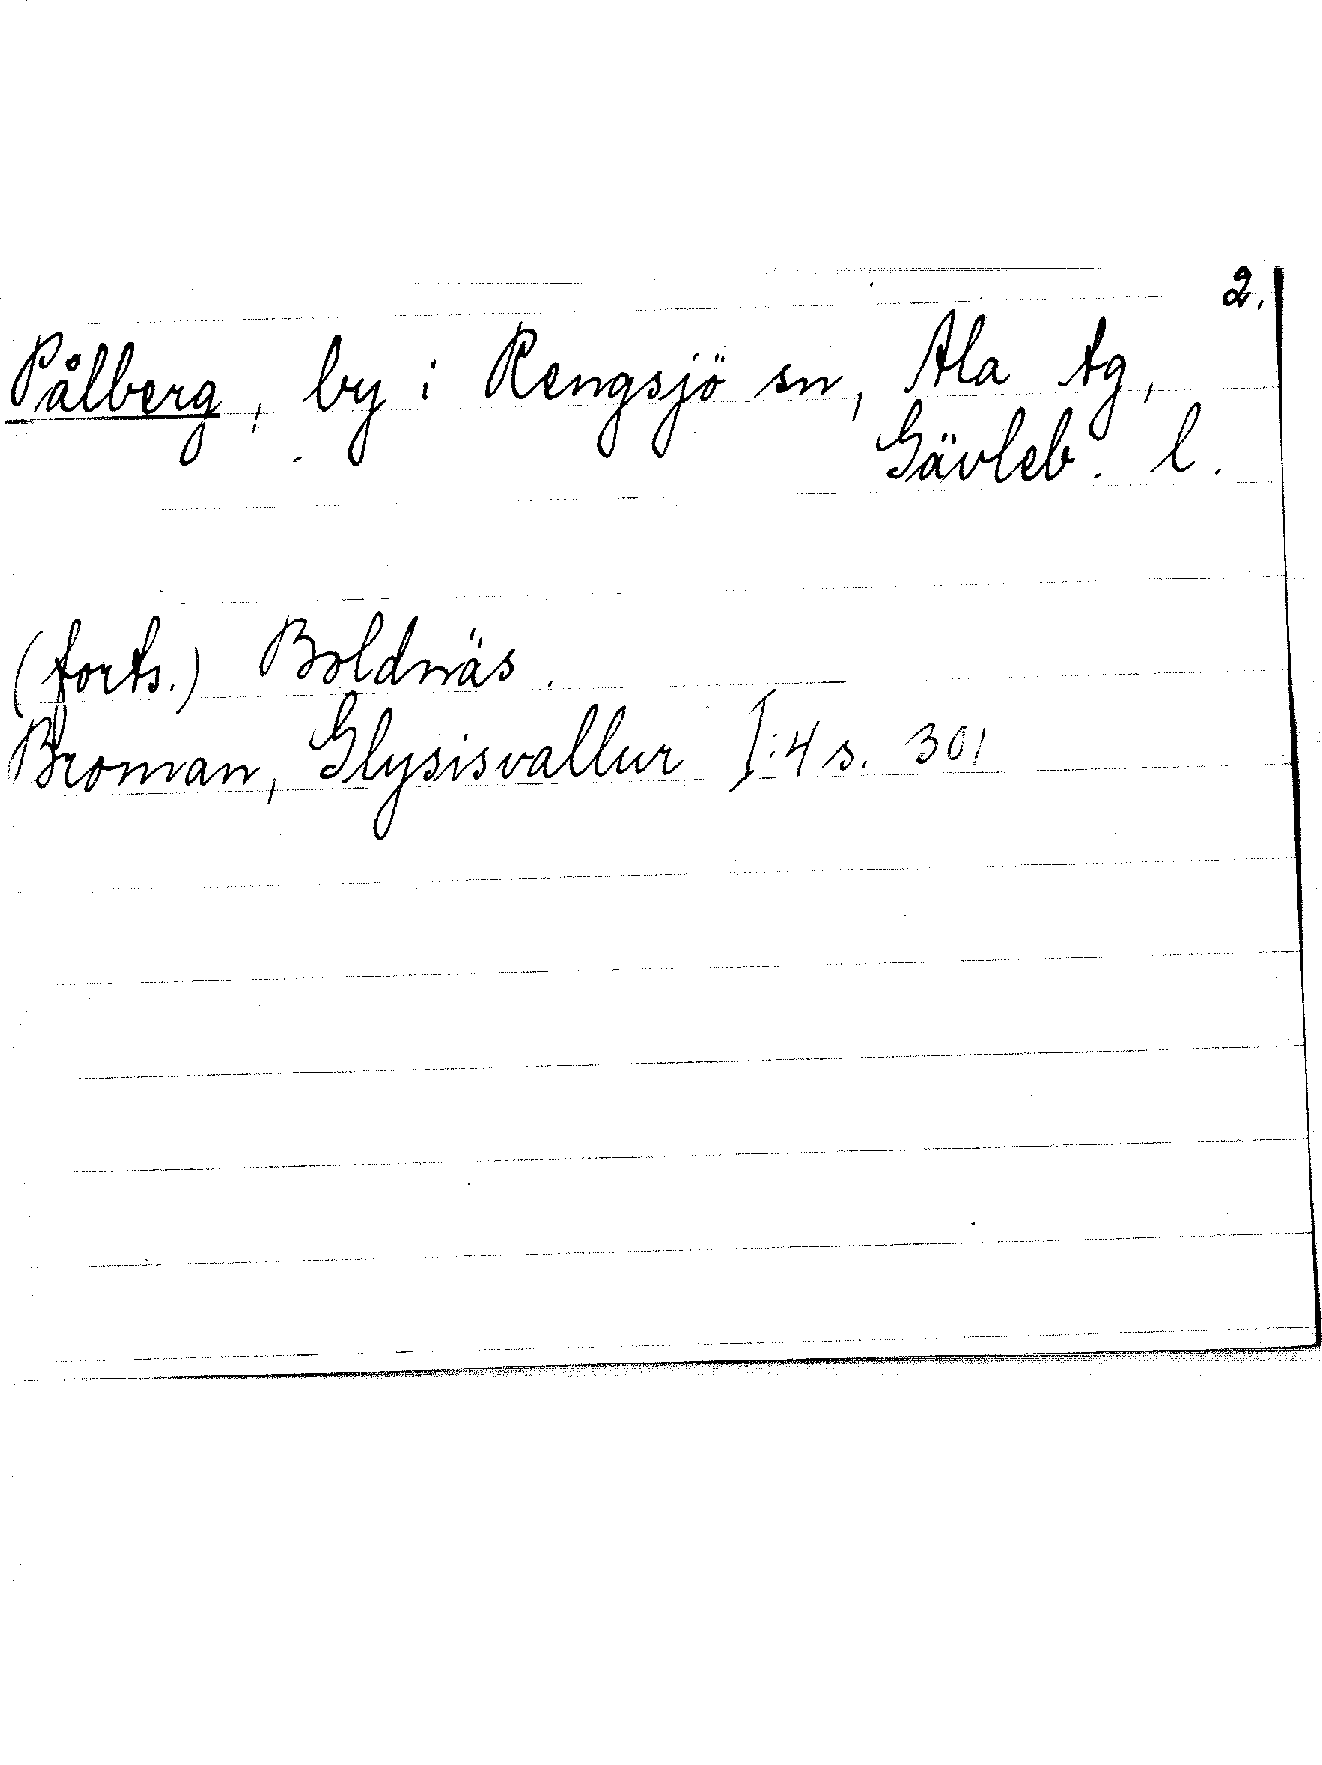 2.
Pålberg, by i Rengsjö sn, Ala tg,
Gävleb. l.
(forts.) Boldnäs.
Broman, Glysisvallur I:4 s. 301